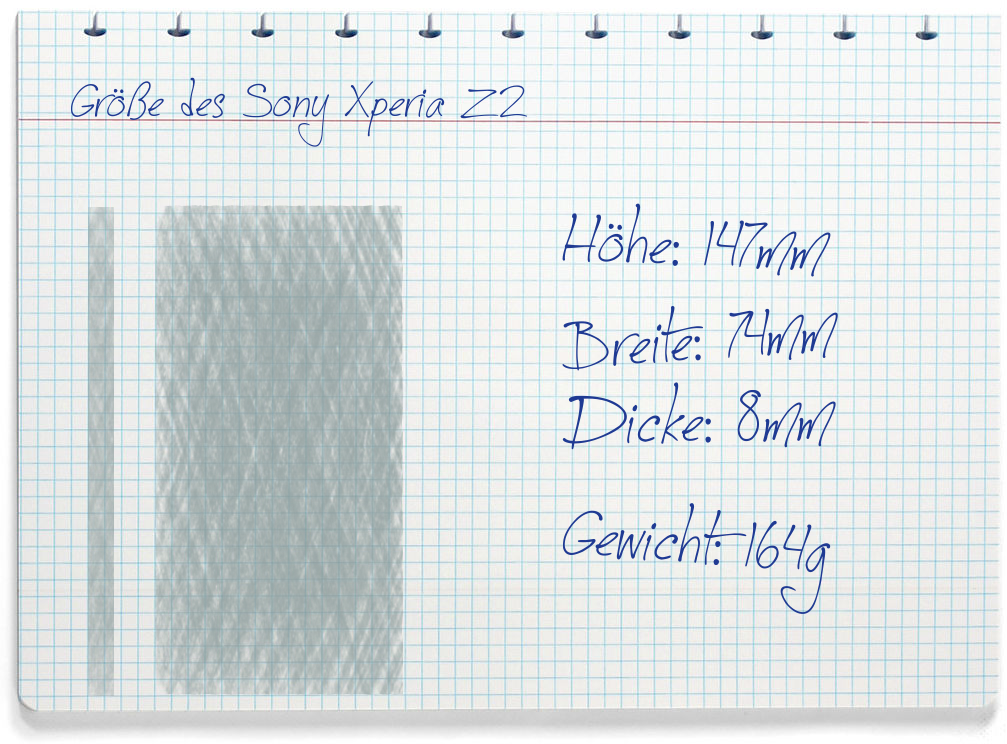 Größe des Sony Xperia Z2
Höhe: 147mm
Breite: 74mm
Dicke: 8mm
Gewicht: 164g